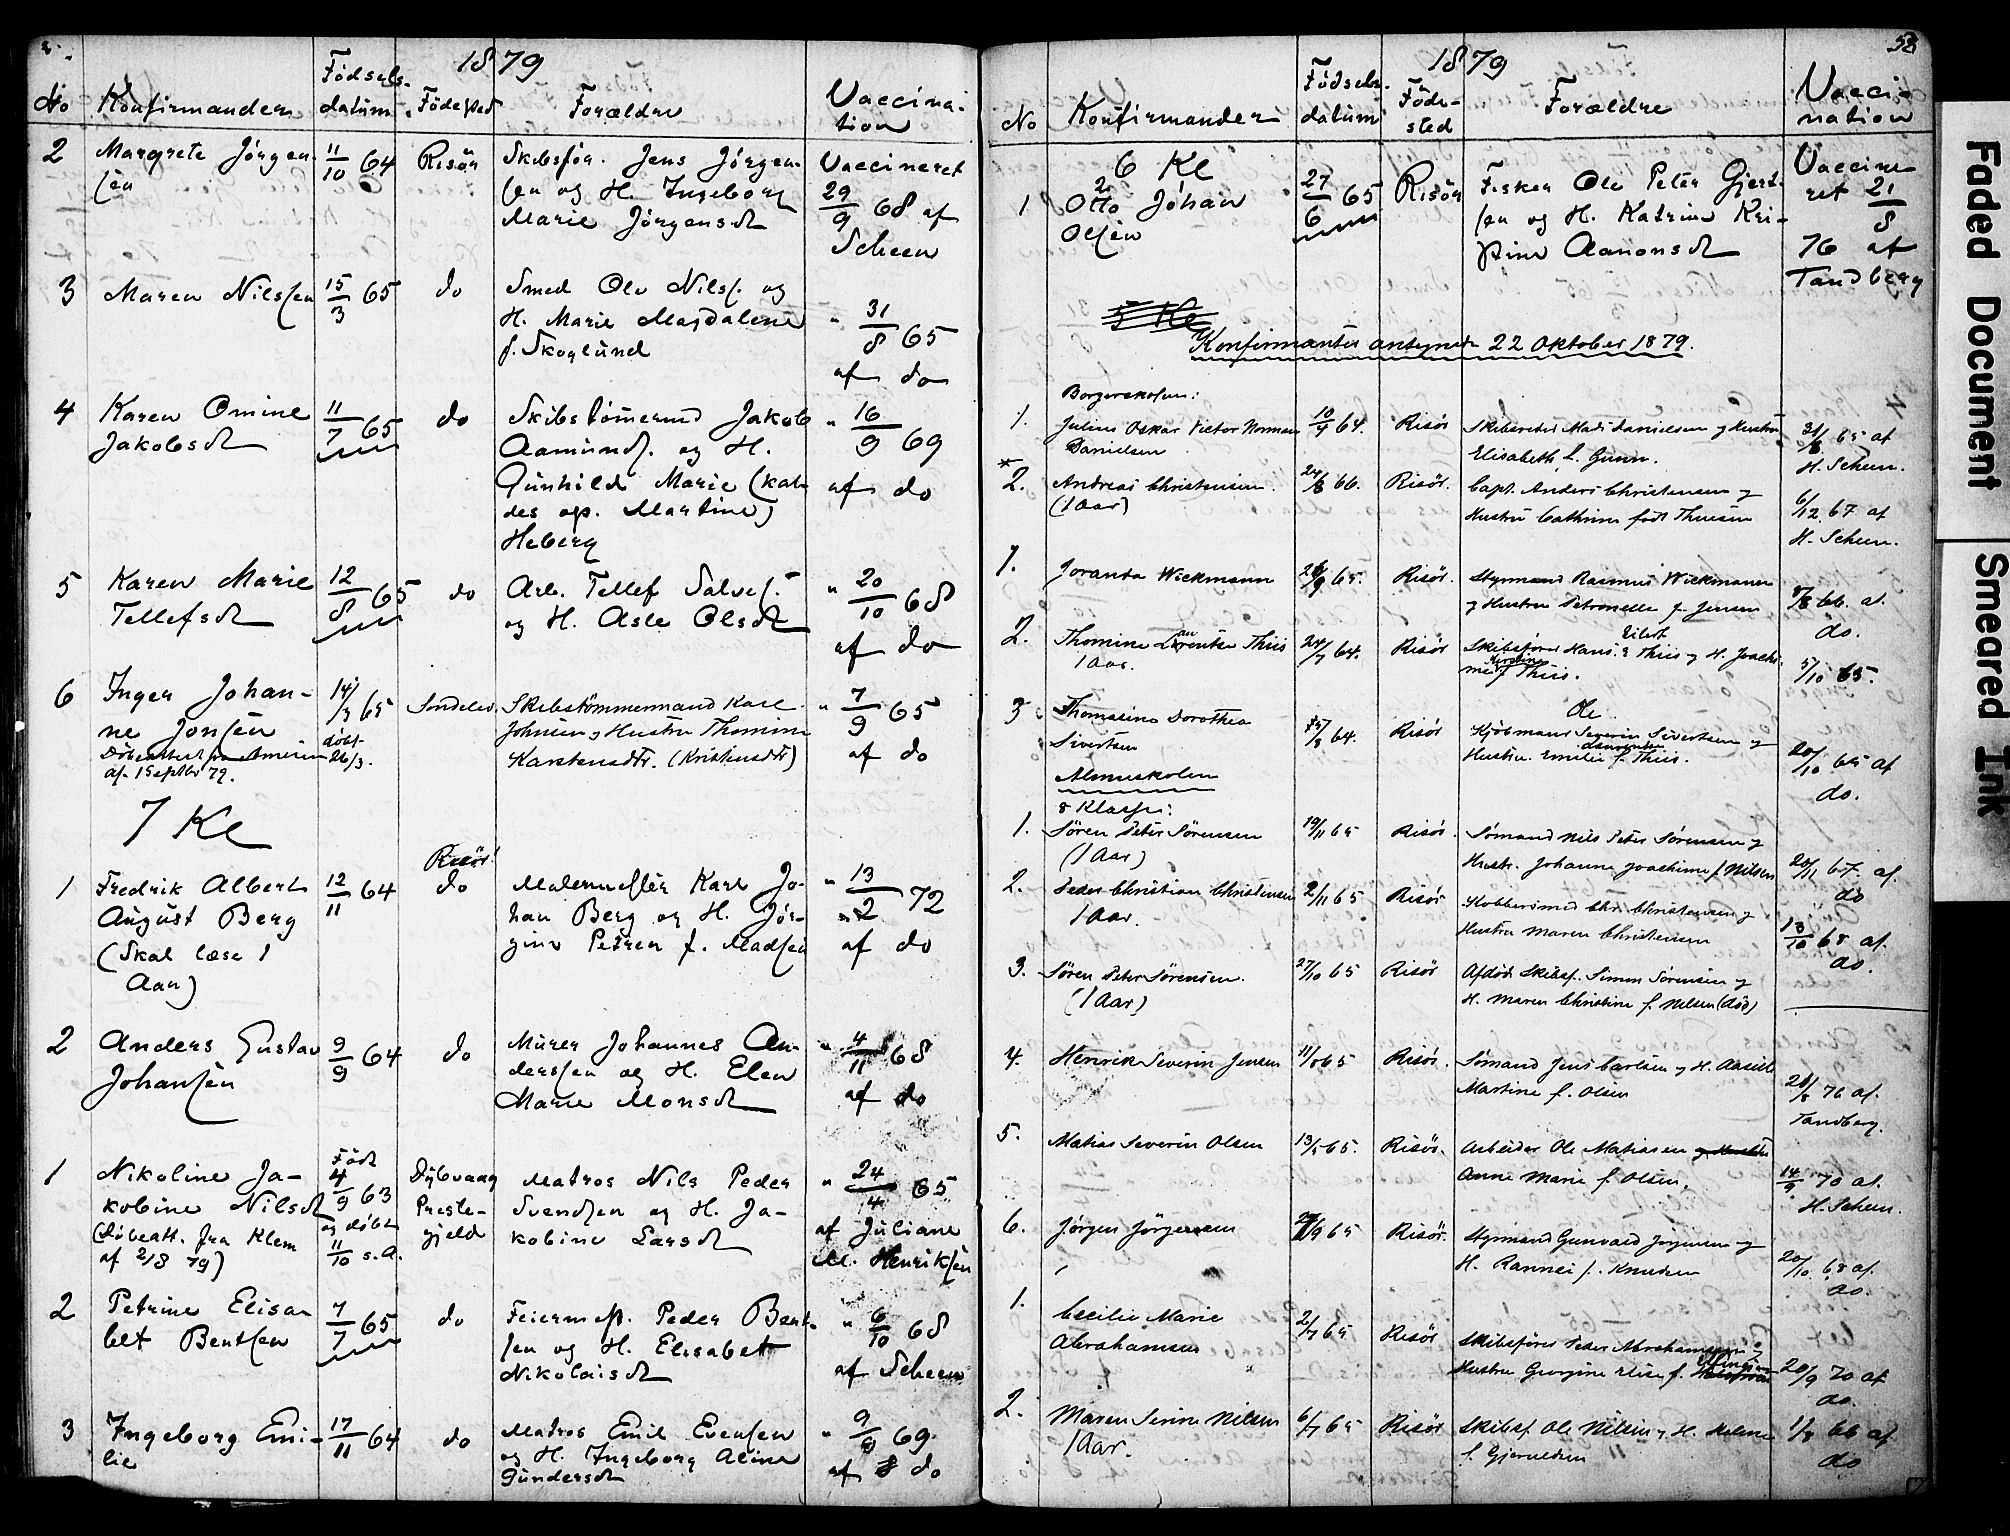 1879
No Konfirmander Fødsels-datum Fødested Forældre Vaccina-tion
2 Margrete Jörgen- 11/10 64 Risör Skibsför. Jens Jörgen- Vaccineret
sen sen og H. Ingeborg 29/9 68 af
Marie Jörgensd Scheen
3 Maren Nilssen 15/3 65 do Smed Ole Nilss. og " 31/8 65
H. Marie Magdalene
f. Skoglund af do
4 Karen Omine 11/7 65 do Skibstömermd Jakob " 16/9 69
Jakobsd Aamunds. og H.
Gunhild Marie (kal- af do
des ogs. Martine)
Heberg
5 Karen Marie 12/8 65 do Arb. Tellef Salves. " 20/10 68
Tellefsd og H. Asle Olsd
af do
6 Inger Johan- 14/3 65 Söndeled. Skibstömmermand Karl " 7/9 65
ne Jonsen döbt 26/3. Johnsen og Hustru Thomine
Karstensdtr. (Kristensdtr) af do
af 1 Septbr 79.
7 Kl
Risör
1 Fredrik Albert 12/11 64 do Malermester Karl Jo- " 13/2 72
August Berg han Berg og H. Jör-
(Skal læse 1 gine Petrea f. Madsen af do
Aar)
2 Anders Gustav 9/9 64 do Murer Johannes An- " 4/11 68
Johansen derssen og H. Elen
Marie Monsd af do
1 Nikoline Ja- Född 4/9 63 Dybvaag Matros Nils Peder " 24/4 65
kobine Nilsd og döbt Preste- Svendsen og H. Ja-
(Döbeatt. fra Klem 11/10 s.A. gjeld kobine Larsd af Juliane
af 2/8 79) M. Henriksen
2 Petrine Elisa- 7/7 65 do Feiermest. Peder Bent- " 6/10 68
bet Bentsen sen og H. Elisabet
Nikolaisd af Scheen
3 Ingeborg Emi- 17/11 64 do Matros Emil Evensen " 9/9 69
lie og H. Ingeborg Aline
Gundersd af do
58
1879
No Konfirmander Fødsels-datum Føde-sted Forældre Vacci-nation
6 Kl
1 Otto Johan 27/6 65 Risör Fisker Ole Peter Gjert- Vaccine-
Olsen sen og H. Katrine Kri- ret 21/8
stine Aanonsd 76 af
Tandberg
5 Kl
Konfirmanter antegnede 22 Oktober 1879.
Borgerskolen:
1. Julius Oskar Victor Norman 10/4 64. Risör Skibsreder Mads Danielsen og Hustru 31/8 65 af
Danielsen Elisabeth f. Gunn. H. Scheen.
2. Andreas Christensen. 24/8 66. Risör. Capt. Anders Christensen og 6/12 67 af
(1 Aar) Hustru Cathrine född Thuesen H. Scheen.
1. Joranda Wickmann 65. Risör. Styrmand Rasmus Wickmann 66. af
og Hustru Petronelle f. Jensen do.
2. Thomine Laurentze Thiis 24/7 64. Risör Skibsförer Hans Eilert Thiis og H. Joachi- 5/10 65.
1 Aar. f. Thiis.
3 Thomasine Dorothea 64. Risör Kjöbmand Ole Severin Sivertsen og 20/10 65 af
Sivertsen Hustru Emilie f. Thiis. do.
Almueskolen
8 Klasse:
1. Sören Peter Sörensen 19/11 65 Risör. Sömand Nils Peter Sörensen og 20/11 67. af.
(1 Aar) Hustr. Johanne Joachime f. Nilsen do
2. Peder Christian Christensen 2/11 65 Risör Kobbersmed Chr. Christensen og 13/10 68 af.
1 Aar. Hustru Maren Christensen do.
3. Sören Peter Sörensen. 27/10 65 Risör Afdöd Skibsf. Simon Sörensen og
(1 Aar) H. Maren Christine f. Nilsen (död)
4. Henrik Severin Jensen 65 Risör. Sömand Jens Carlsen og H. Aasille 76 af.
Martine f. Olsen Tandberg.
5. Matias Severin Olsen 13/5 65. Risör. Arbeider Ole Matiasen og Hustru 14/9 70 af.
Anne Marie f. Olsen. H. Scheen.
6. Jörgen Jörgensen 65 Risör. Styrmand Gunvald Jörgensen og 20/10 68 af.
H. Rannei f. Knudsen do.
1. Cecilie Marie 2/7 65 Risör Skibsförer Peder Abrahamsen og 20/9 70 af
Abrahamsen Hustru Georgine Elise f. Ellingsen do.
2. Maren Serine Nilsen 6/7 65 Risör Skibsf. Ole Nilsen og H. Helene 1/8 66 af
1 Aar. f. Gjeruldsen do
Faded Document
Smeared Ink